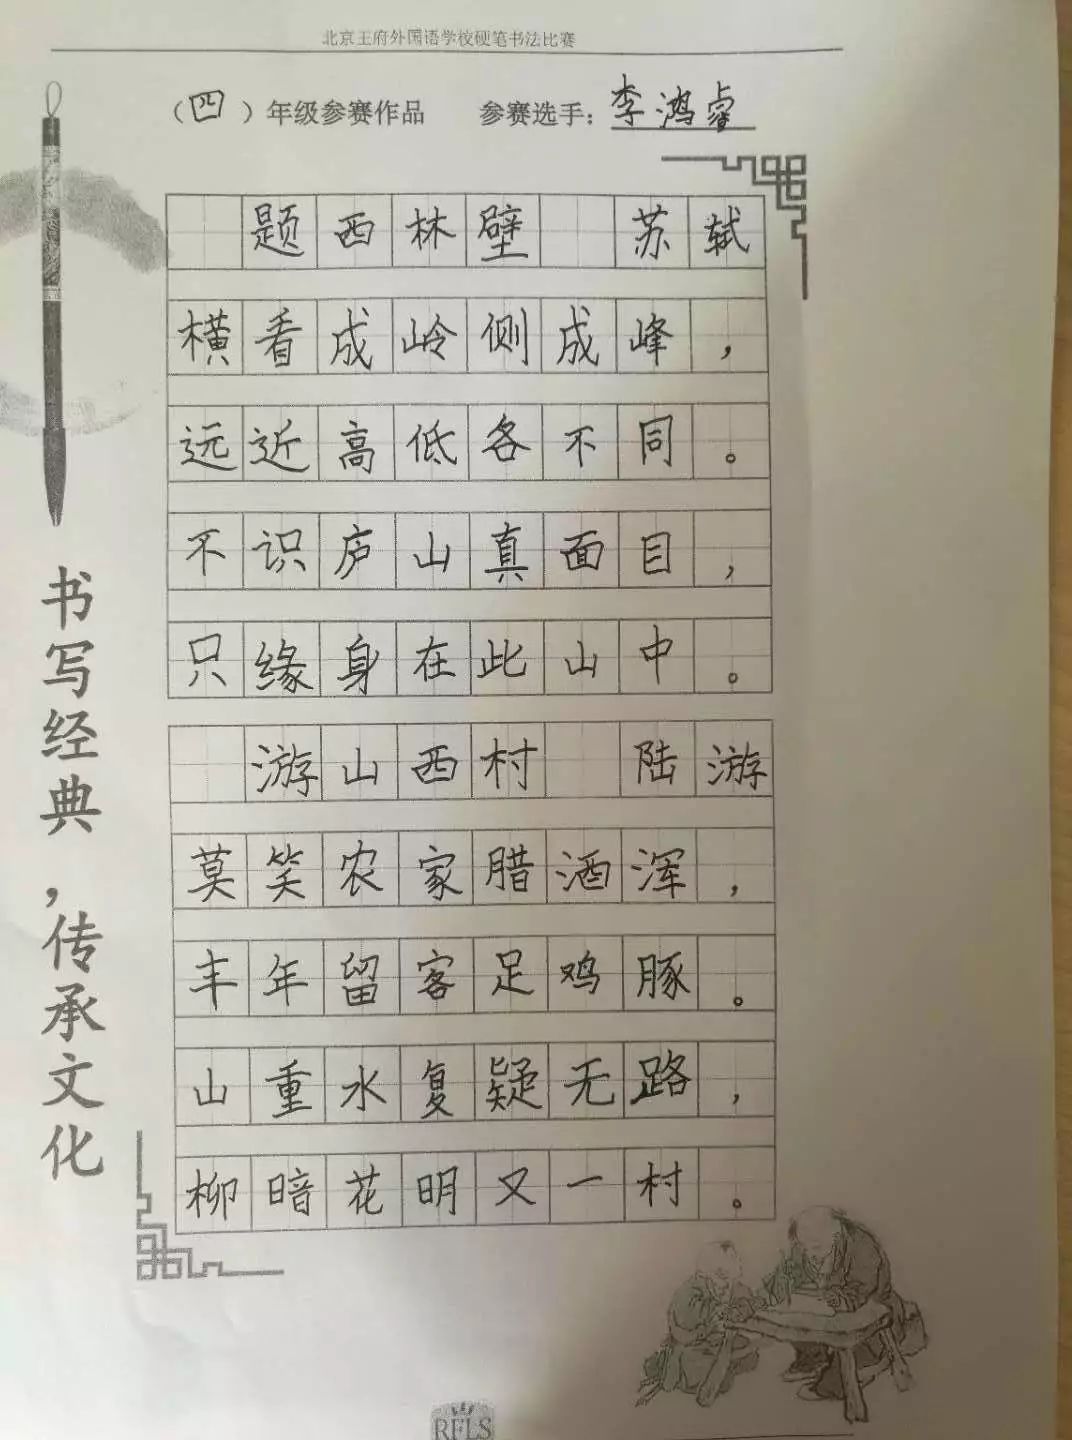 北京王府外国语学校硬笔书法比赛
（四）年级参赛作品 参赛选手：李鸿睿
题西林壁 苏轼
横看成岭侧成峰，
远近高低各不同。
不识庐山真面目，
只缘身在此山中。
游山西村 陆游
莫笑农家腊酒浑，
丰年留客足鸡豚。
山重水复疑无路，
柳暗花明又一村。
书写经典，传承文化
RFLS